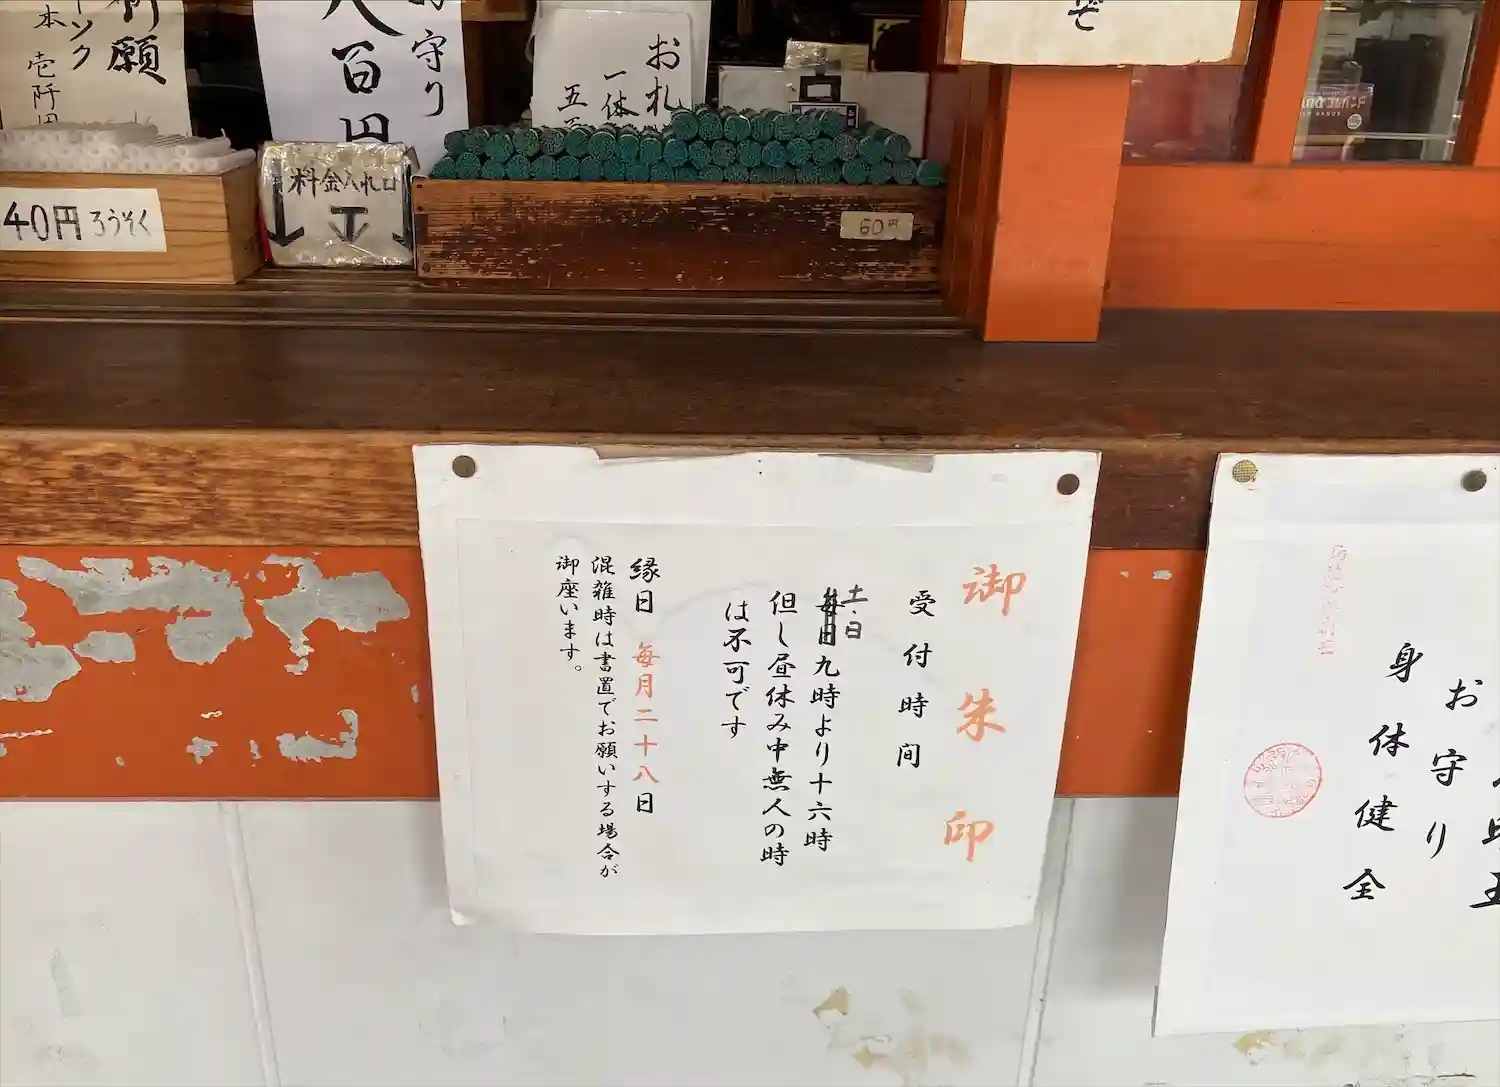 祈願
本 壱阡円
お守り
八百円
お札
一体
40円 ろうそく
料金入れ口
60円
御朱印
受付時間
土・日
毎日九時より十六時
但し昼休み中無人の時
は不可です
縁日 毎月二十八日
混雑時は書置でお願いする場合が
御座います。
お守り
身体健全